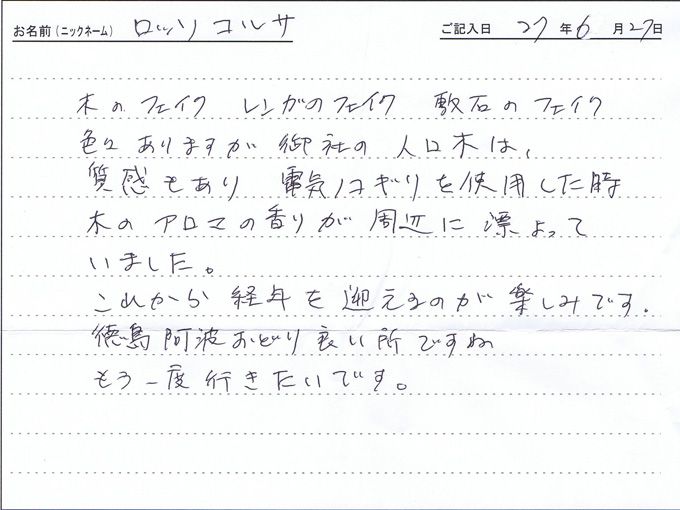 お名前(ニックネーム) ロッソコルサ ご記入日 27年6月27日
木のフェイク レンガのフェイク 敷石のフェイク
色々ありますが御社の人口木は、
質感もあり 電気ノコギリを使用した時
木のアロマの香りが周辺に漂よって
いました。
これから経年を迎えるのが楽しみです.
徳島阿波おどり良い所ですね
もう一度行きたいです。